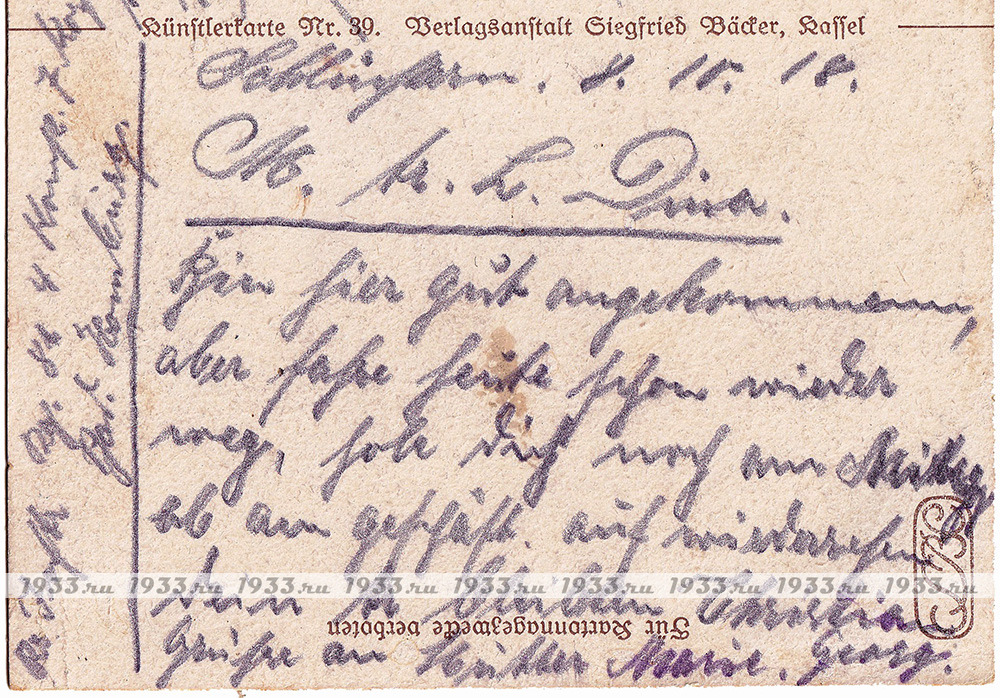 Künstlerkarte Nr. 39. Verlagsanstalt Siegfried Bäcker, Kassel
Schlüchtern. 8. 10. 18.
M. tr. L. Dina.
Bin hier gut angekommenn,
aber fahre heute schon wieder
weg, hole dich noch am Mittag
ab am geschäft. auf wiedersehen
dein Christian
Grüße an Mutter Marie. Georg.
Für Kartonnagezwecke verboten
4 Komp.
Homburg.
1933.ru 1933.ru 1933.ru 1933.ru 1933.ru 1933.ru 1933.ru 1933.ru 1933.ru